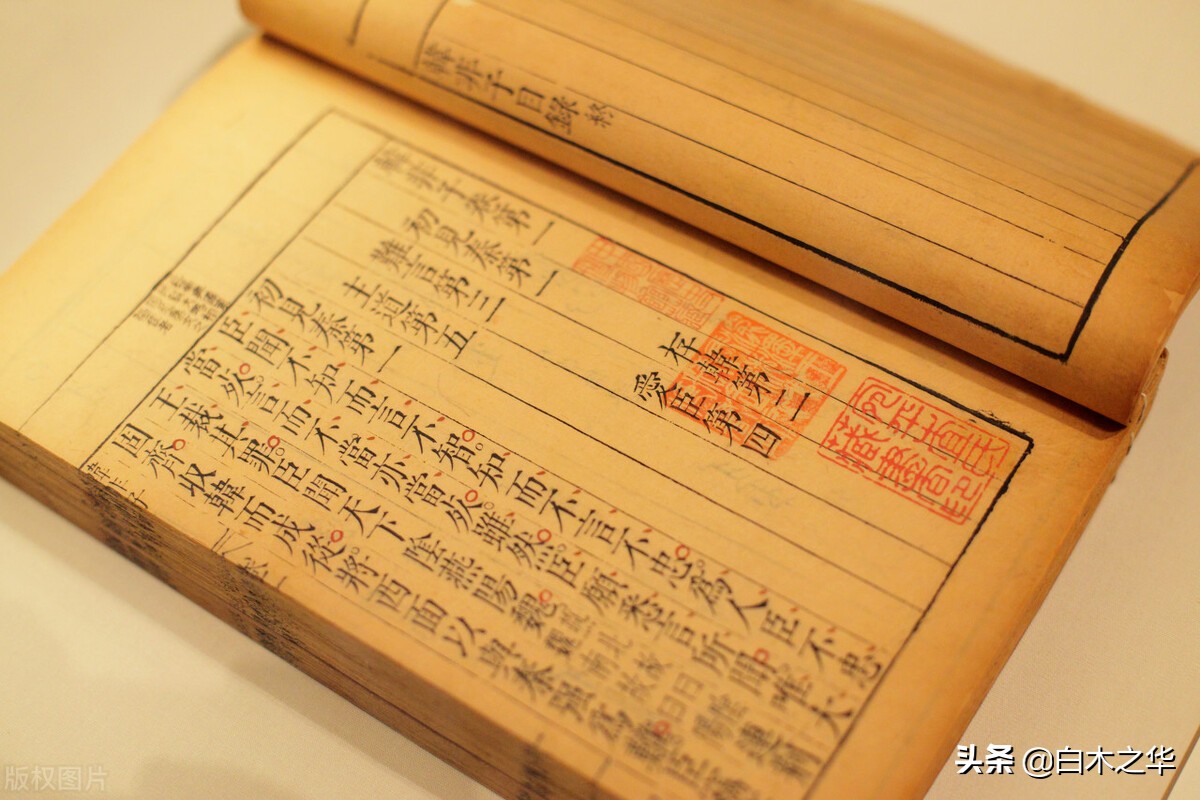 韓非子目錄終
韓非子卷第一
初見秦第一　存韓第二
難言第三　愛臣第四
主道第五
初見秦第一
臣聞不知而言不智知而不言不忠為人臣不忠
當死言而不當亦當死雖然臣願悉言所聞唯大
王裁其罪臣聞天下陰燕陽魏連荊
固齊收韓而成從將西面以與秦強為難臣
版权图片
头条 @白木之华